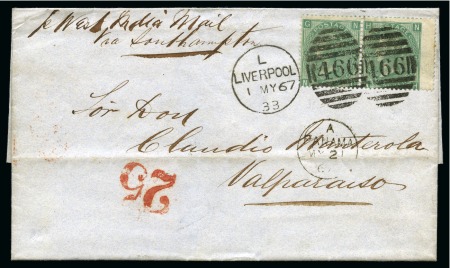 p West India Mail
Via Southampton
L
LIVERPOOL
1 MY 67
33
466
466
G
N
A
PANAMA
21
Sör Don
Claudio
Valparaiso
25